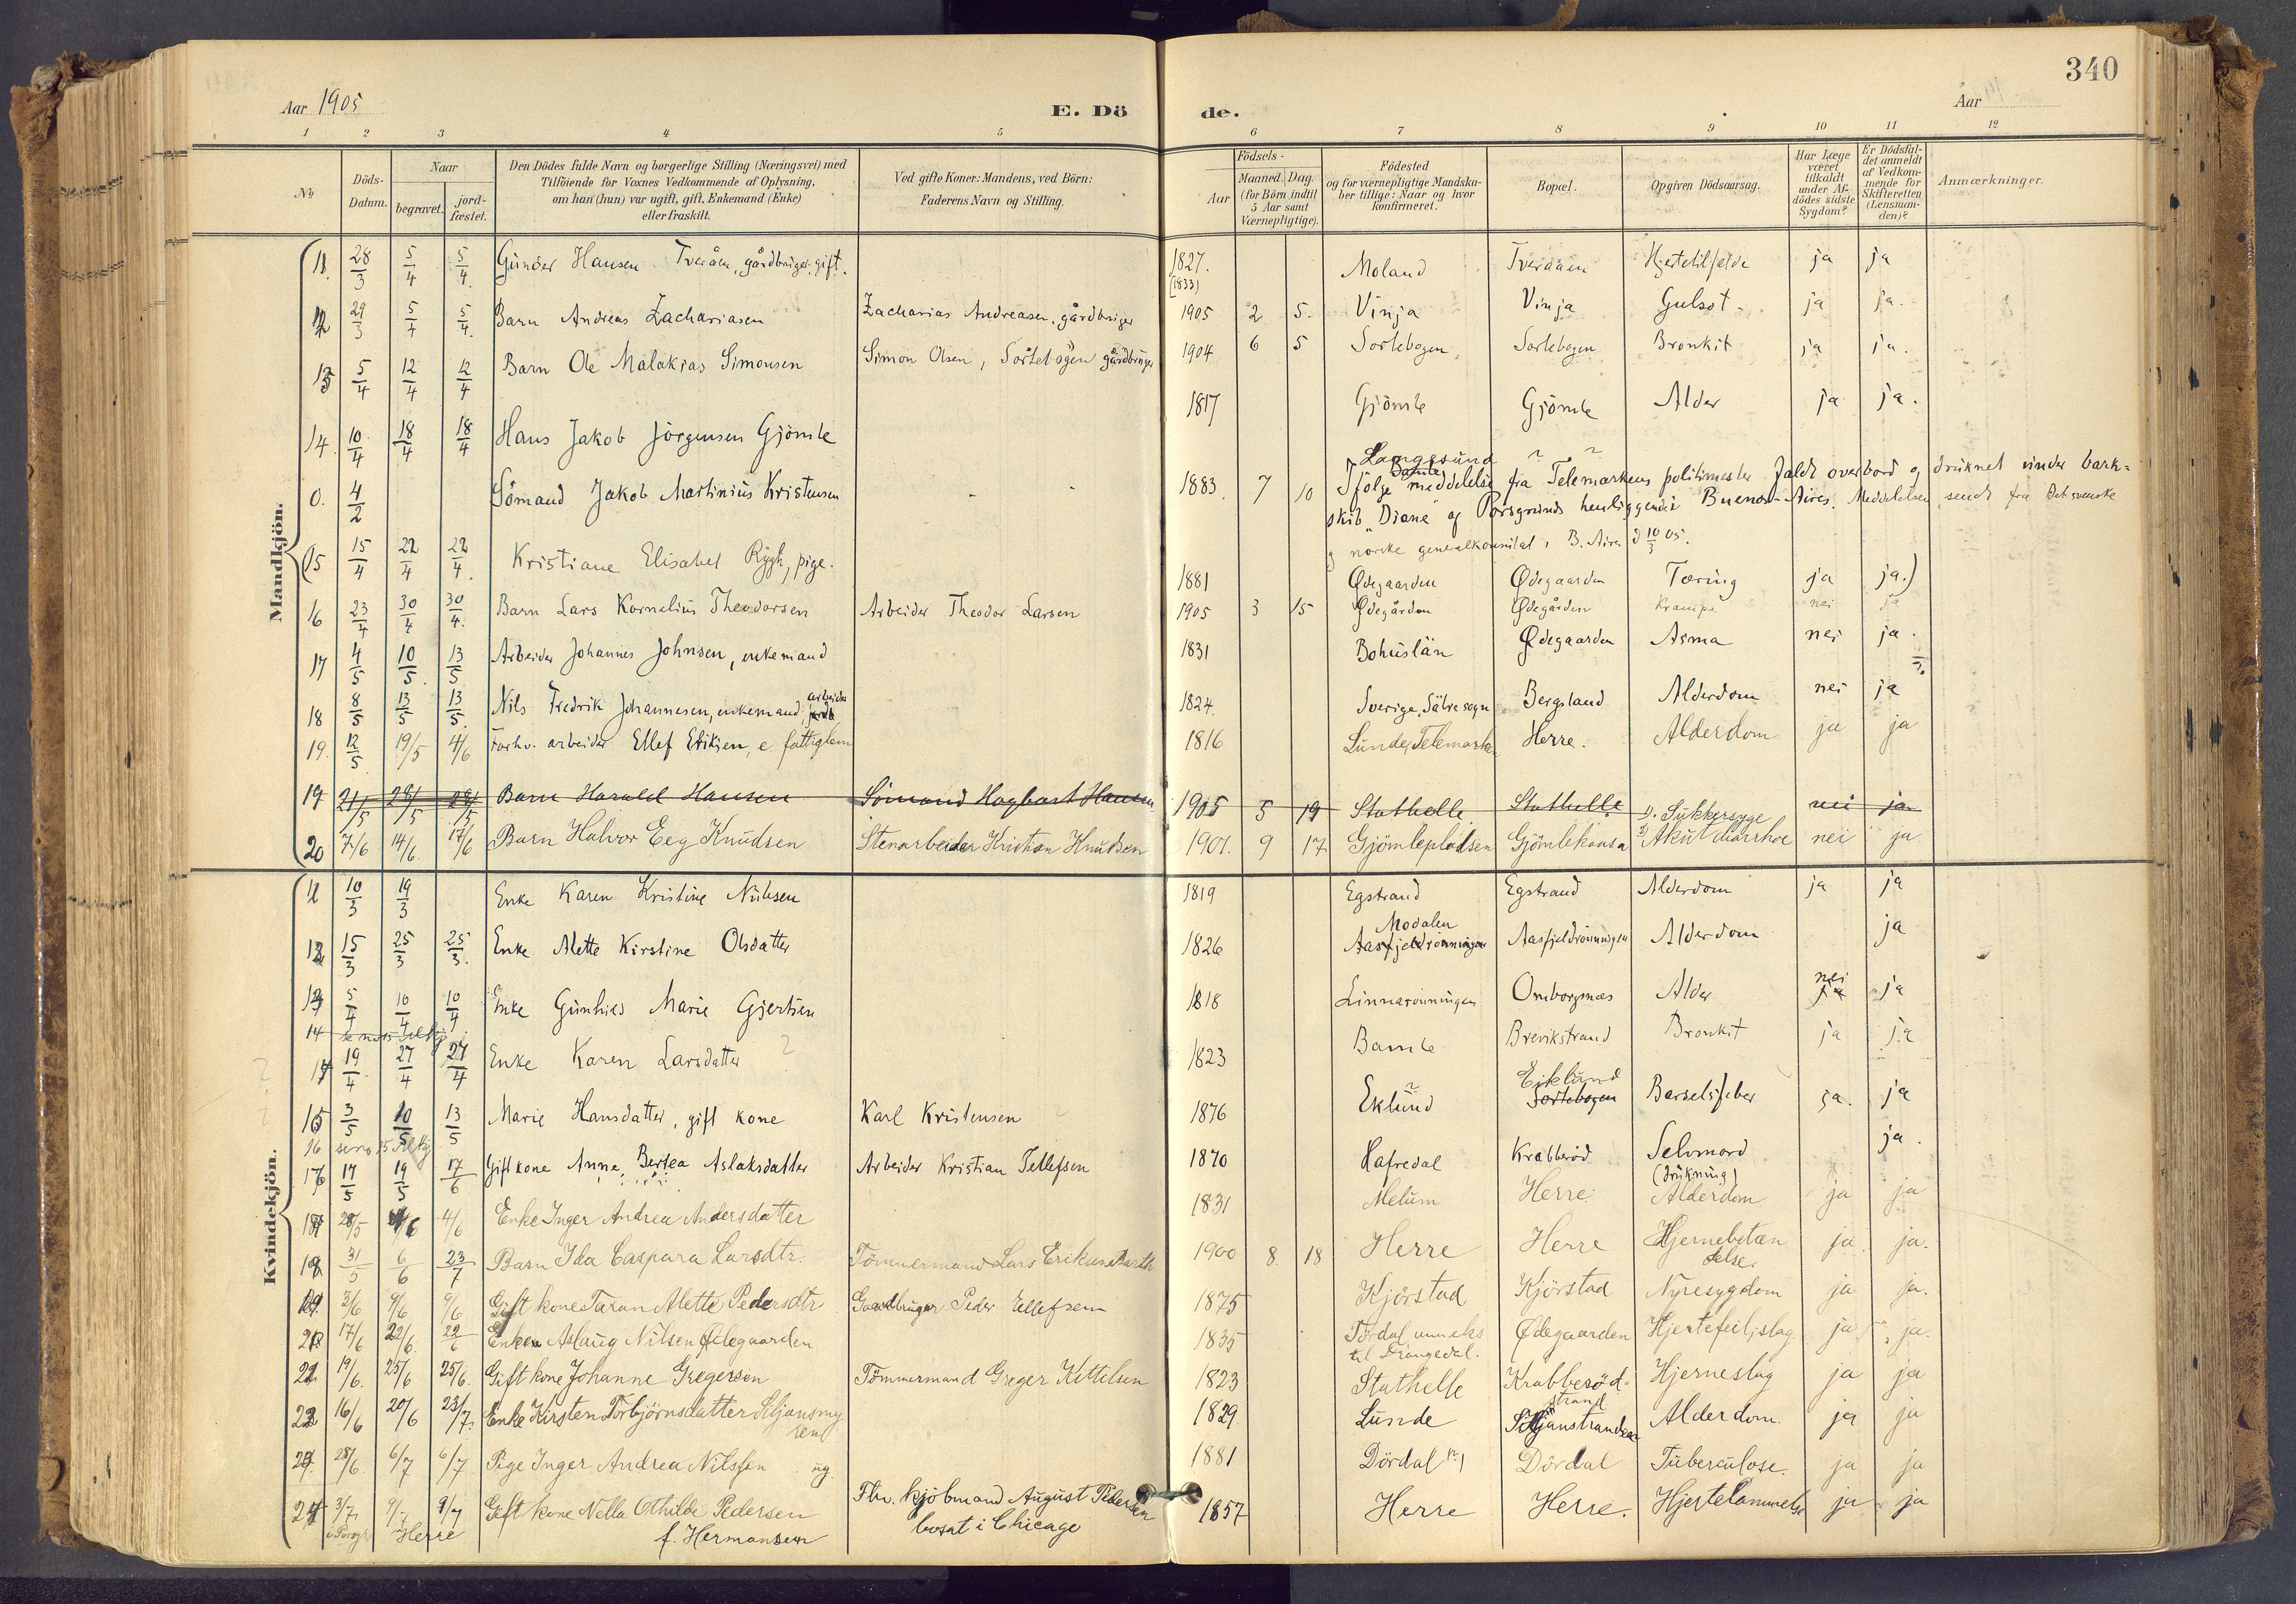 340
Aar 1905
E. Dö de.
Aar
1 2 3 4 5 6 7 8 9 10 11 12
No
Döds-Datum.
Naar
begravet.
jord-fæstet.
Den Dödes fulde Navn og borgerlige Stilling (Næringsvei) med
Tilföiende for Voxnes Vedkommende af Oplysning,
om han (hun) var ugift, gift, Enkemand (Enke)
eller fraskilt.
Ved gifte Koner: Mandens, ved Börn:
Faderens Navn og Stilling.
Födsels-
Aar
Maaned. Dag.
(for Börn indtil
5 Aar samt
Værnepligtige).
Födested
og for værnepligtige Mandska-
ber tillige: Naar og hvor
konfirmeret.
Bopæl.
Opgiven Dödsaarsag.
Har Læge
været
tilkaldt
under Af-
dödes sidste
Sygdom?
Er Dödsfal-
det anmeldt
af Vedkom-
mende for
Skifteretten
(Lensman-
den)?
Anmærkninger.
Mandkjön.
11. 28/3 5/4 5/4. Gunder Hansen Tveråen, gårdbruger, gift. 1827. (1833) Moland Tveraaen Hjertetilfælde ja ja
12 29/3 5/4 5/4. Barn Andreas Zachariasen Zacharias Andreasen, gårdbruger 1905 2 5. Vinja Vinja Gulsot ja ja.
13 5/4 12/4 12/4 Barn Ole Malakias Simonsen Simon Olsen, Sortebogen gårdbruger 1904 6 5 Sortebogen Sortebogen Bronkit ja ja.
14. 10/4 18/4 18/4 Hans Jakob Jörgensen Gjömle 1817 Gjömle Gjömle Alder ja ja.
0. 4/2 Sömand Jakob Martinius Kristensen 1883. 7 10 Langesund Bamle
Ifölge meddelelse fra Telemarkens politimester faldt overbord og druknet under bark-
skib "Diana" af Porsgrunds henliggende i Buenos-Aires. Meddelelsen sendt fra Det svenske
og norske generalkonsulat i B. Aires d 10/3 05.
(15 15/4 22/4 22/4. Kristiane Elisabet Rygh, pige. 1881 Ødegaarden Ødegaarden Tæring ja ja.)
16 23/4 30/4 30/4. Barn Lars Kornelius Theodorsen Arbeider Theodor Larsen 1905 3 15 Ødegården Ødegården Krampe nei ja
17 4/5 10/5. 13/5 Arbeider Johannes Johnsen, enkemand 1831 Bohuslän Ødegaarden Asma nei ja.
18 8/5 13/5 13/5. Nils Fredrik Johannesen, enkemand, arbeider 1824. Sverige, Sätre sogn Bergsland Alderdom nei ja
19. 12/5 19/5 4/6 Forhv. arbeider Ellef Eriksen, e. fattiglem 1816 Lunde, Telemarken Herre. Alderdom ja ja
19 21/5 28/5 28/5 Barn Harald Hansen Sömand Hagbart Hansen 1905 5 19 Stathelle Stathelle 1). Sukkersyge nei ja
20 7/6 14/6. 17/6 Barn Halvor Eeg Knudsen Stenarbeider Kristian Knudsen 1901. 9 17 Gjömlepladsen Gjömlekaasa 2) Akut diarrhoe nei ja
Kvindekjön.
11 10/3 19/3 Enke Karen Kristine Nilsen 1819 Egstrand Egstrand Alderdom ja ja
12 15/3 25/3 25/3. Enke Alette Kirstine Olsdatter 1826 Modalen Aasfjeldrönningen Aasfjeldrönningen Alderdom ja
13 5/4 10/4 10/4 Enke Gunhies Marie Gjertsen 1818 Linnarönningen Omborgsnæs Alder nei ja ja
14 se no 15
14 19/4. 27/4 27/4 Enke Karen Larsdatter ? 1823 Bamle Brevikstrand Bronkit ja ja
15 3/5 10/5 13/5 Marie Hansdatter, gift kone Karl Kristensen 1876 Eklund Eiklund Sortebogen Barselsfeber ja. ja
16 se no 15
16 17/5 19/5 17/6 Gift kone Anne Bertea Aslaksdatter Arbeider Kristian Tellefsen 1870 Hafredal Krabberød Selvmord (drukning) ja.
17 28/5 4/6 4/6 Enke Inger Andrea Andersdatter 1831 Melum Herre. Alderdom ja ja
18 31/5 6/6 23/7 Barn Ida Caspara Larsdtr. Tömmermand Lars Eriksen Barth 1900 8. 18 Herre Herre Hjernebetændelse. ja. ja.
19. 3/6 9/6 9/6 Gift kone Taran Alette Pedersdtr Gaardbruger Peder Ellefsen 1875 Kjörstad Kjörstad Nyresygdom ja ja.
20. 17/6 22/6. 22/6 Enken Aslaug Nilsen Ødegaarden 1835 Tördal anneks til Drangedal. Ødegaarden Hjertefeil, slag ja ja.
21 19/6. 25/6 25/6. Gift kone Johanne Gregersen Tömmermand Greger Kittelsen 1823 Stathelle Krabberödstrand Hjerneslag ja ja
22 16/6 20/6 23/7. Enke Kirsten Torbjörnsdatter Siljansmyren 1829. Lunde Siljanstranden Alderdom. ja ja
23. 28/6. 6/7 6/7 Pige Inger Andrea Nilssen ug. 1881 Dördal Dördal Tuberculose. ja ja
24 3/7. 9/7 9/7 Gift kone Nella Othilde Pedersen Fhv. kjöbmand August Pedersen 1857 Herre Herre. Hjertelammelse ja ja
i Porsgr. Herre f. Hermansen bosat i Chicago